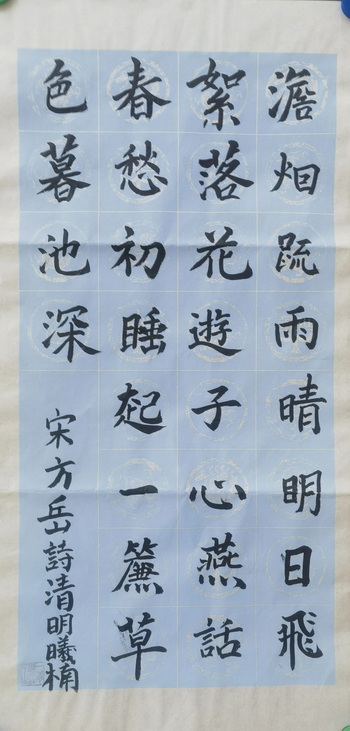 澹烟疏雨晴明日飛
絮落花遊子心燕話
春愁初睡起一簾草
色暮池深
宋方岳詩清明曦楠